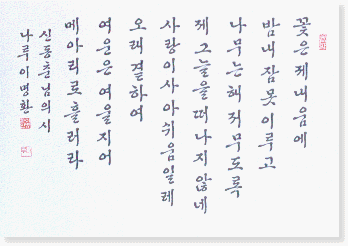 꽃은 제 내음에
밤내 잠 못 이루고
나무는 해 저무도록
제 그늘을 떠나지 않네
사랑이사 아쉬움일레
오래 결하여
여운은 여울지어
메아리로 흘러라
신동춘님의 시
나루 이명환